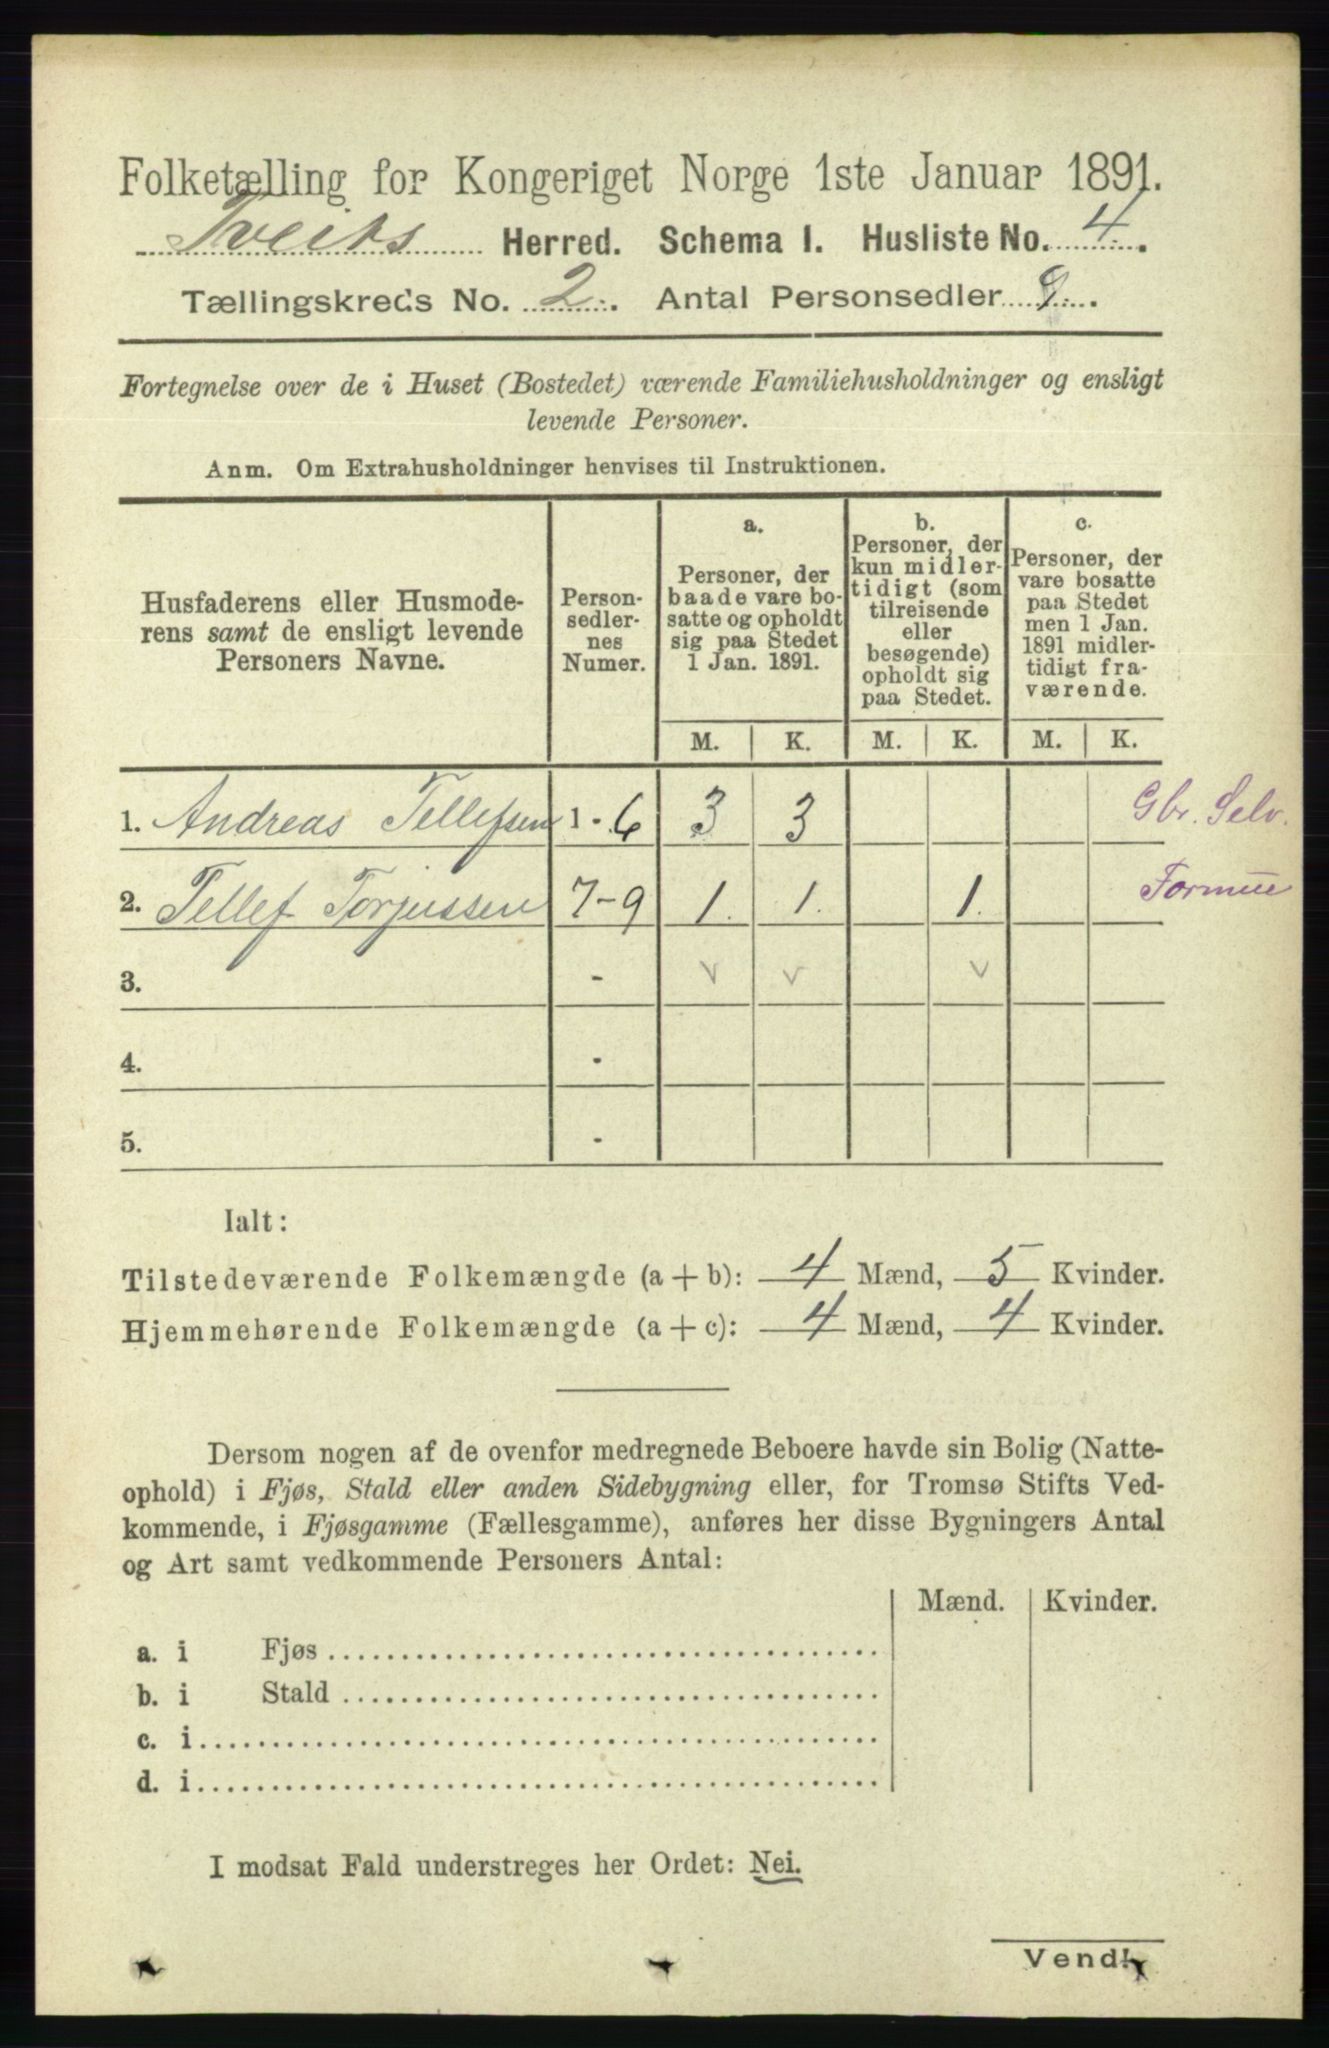 Folketælling for Kongeriget Norge 1ste Januar 1891.
Tveits Herred. Schema I. Husliste No. 4.
Tællingskreds No. 2. Antal Personsedler 9.
Fortegnelse over de i Huset (Bostedet) værende Familiehusholdninger og ensligt
levende Personer.
Anm. Om Extrahusholdninger henvises til Instruktionen.
Husfaderens eller Husmode-
rens samt de ensligt levende
Personers Navne.
Person-
sedler-
nes
Numer.
a.
Personer, der
baade vare bo-
satte og opholdt
sig paa Stedet
1 Jan. 1891.
b.
Personer, der
kun midler-
tidigt (som
tilreisende
eller
besøgende)
opholdt sig
paa Stedet.
c.
Personer, der
vare bosatte
paa Stedet
men 1 Jan.
1891 midler-
tidigt fra-
værende.
M. K. M. K. M. K.
1. Andreas Tellefsen 1 - 6 3 3 Gbr. Selv.
2. Tellef Torjussen 7-9 1. 1. 1. Formue
3. - v v v
4. -
5. -
Ialt:
Tilstedeværende Folkemængde (a + b): 4 Mænd, 5 Kvinder.
Hjemmehørende Folkemængde (a + c): 4 Mænd, 4 Kvinder.
Dersom nogen af de ovenfor medregnede Beboere havde sin Bolig (Natte-
ophold) i Fjøs, Stald eller anden Sidebygning eller, for Tromsø Stifts Ved-
kommende, i Fjøsgamme (Fællesgamme), anføres her disse Bygningers Antal
og Art samt vedkommende Personers Antal:
Mænd. Kvinder.
a. i Fjøs
b. i Stald
c. i
d. i
I modsat Fald understreges her Ordet: Nei.
Vend!